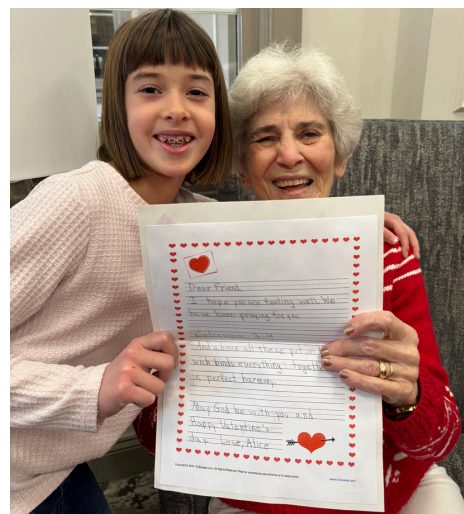 Dear Friend,
I hope you are feeling well. We
have been praying for you.
And above all these put on
wich binds everything together
in perfect harmony.
May God be with you and
Happy Valentine's
day Love, Alice